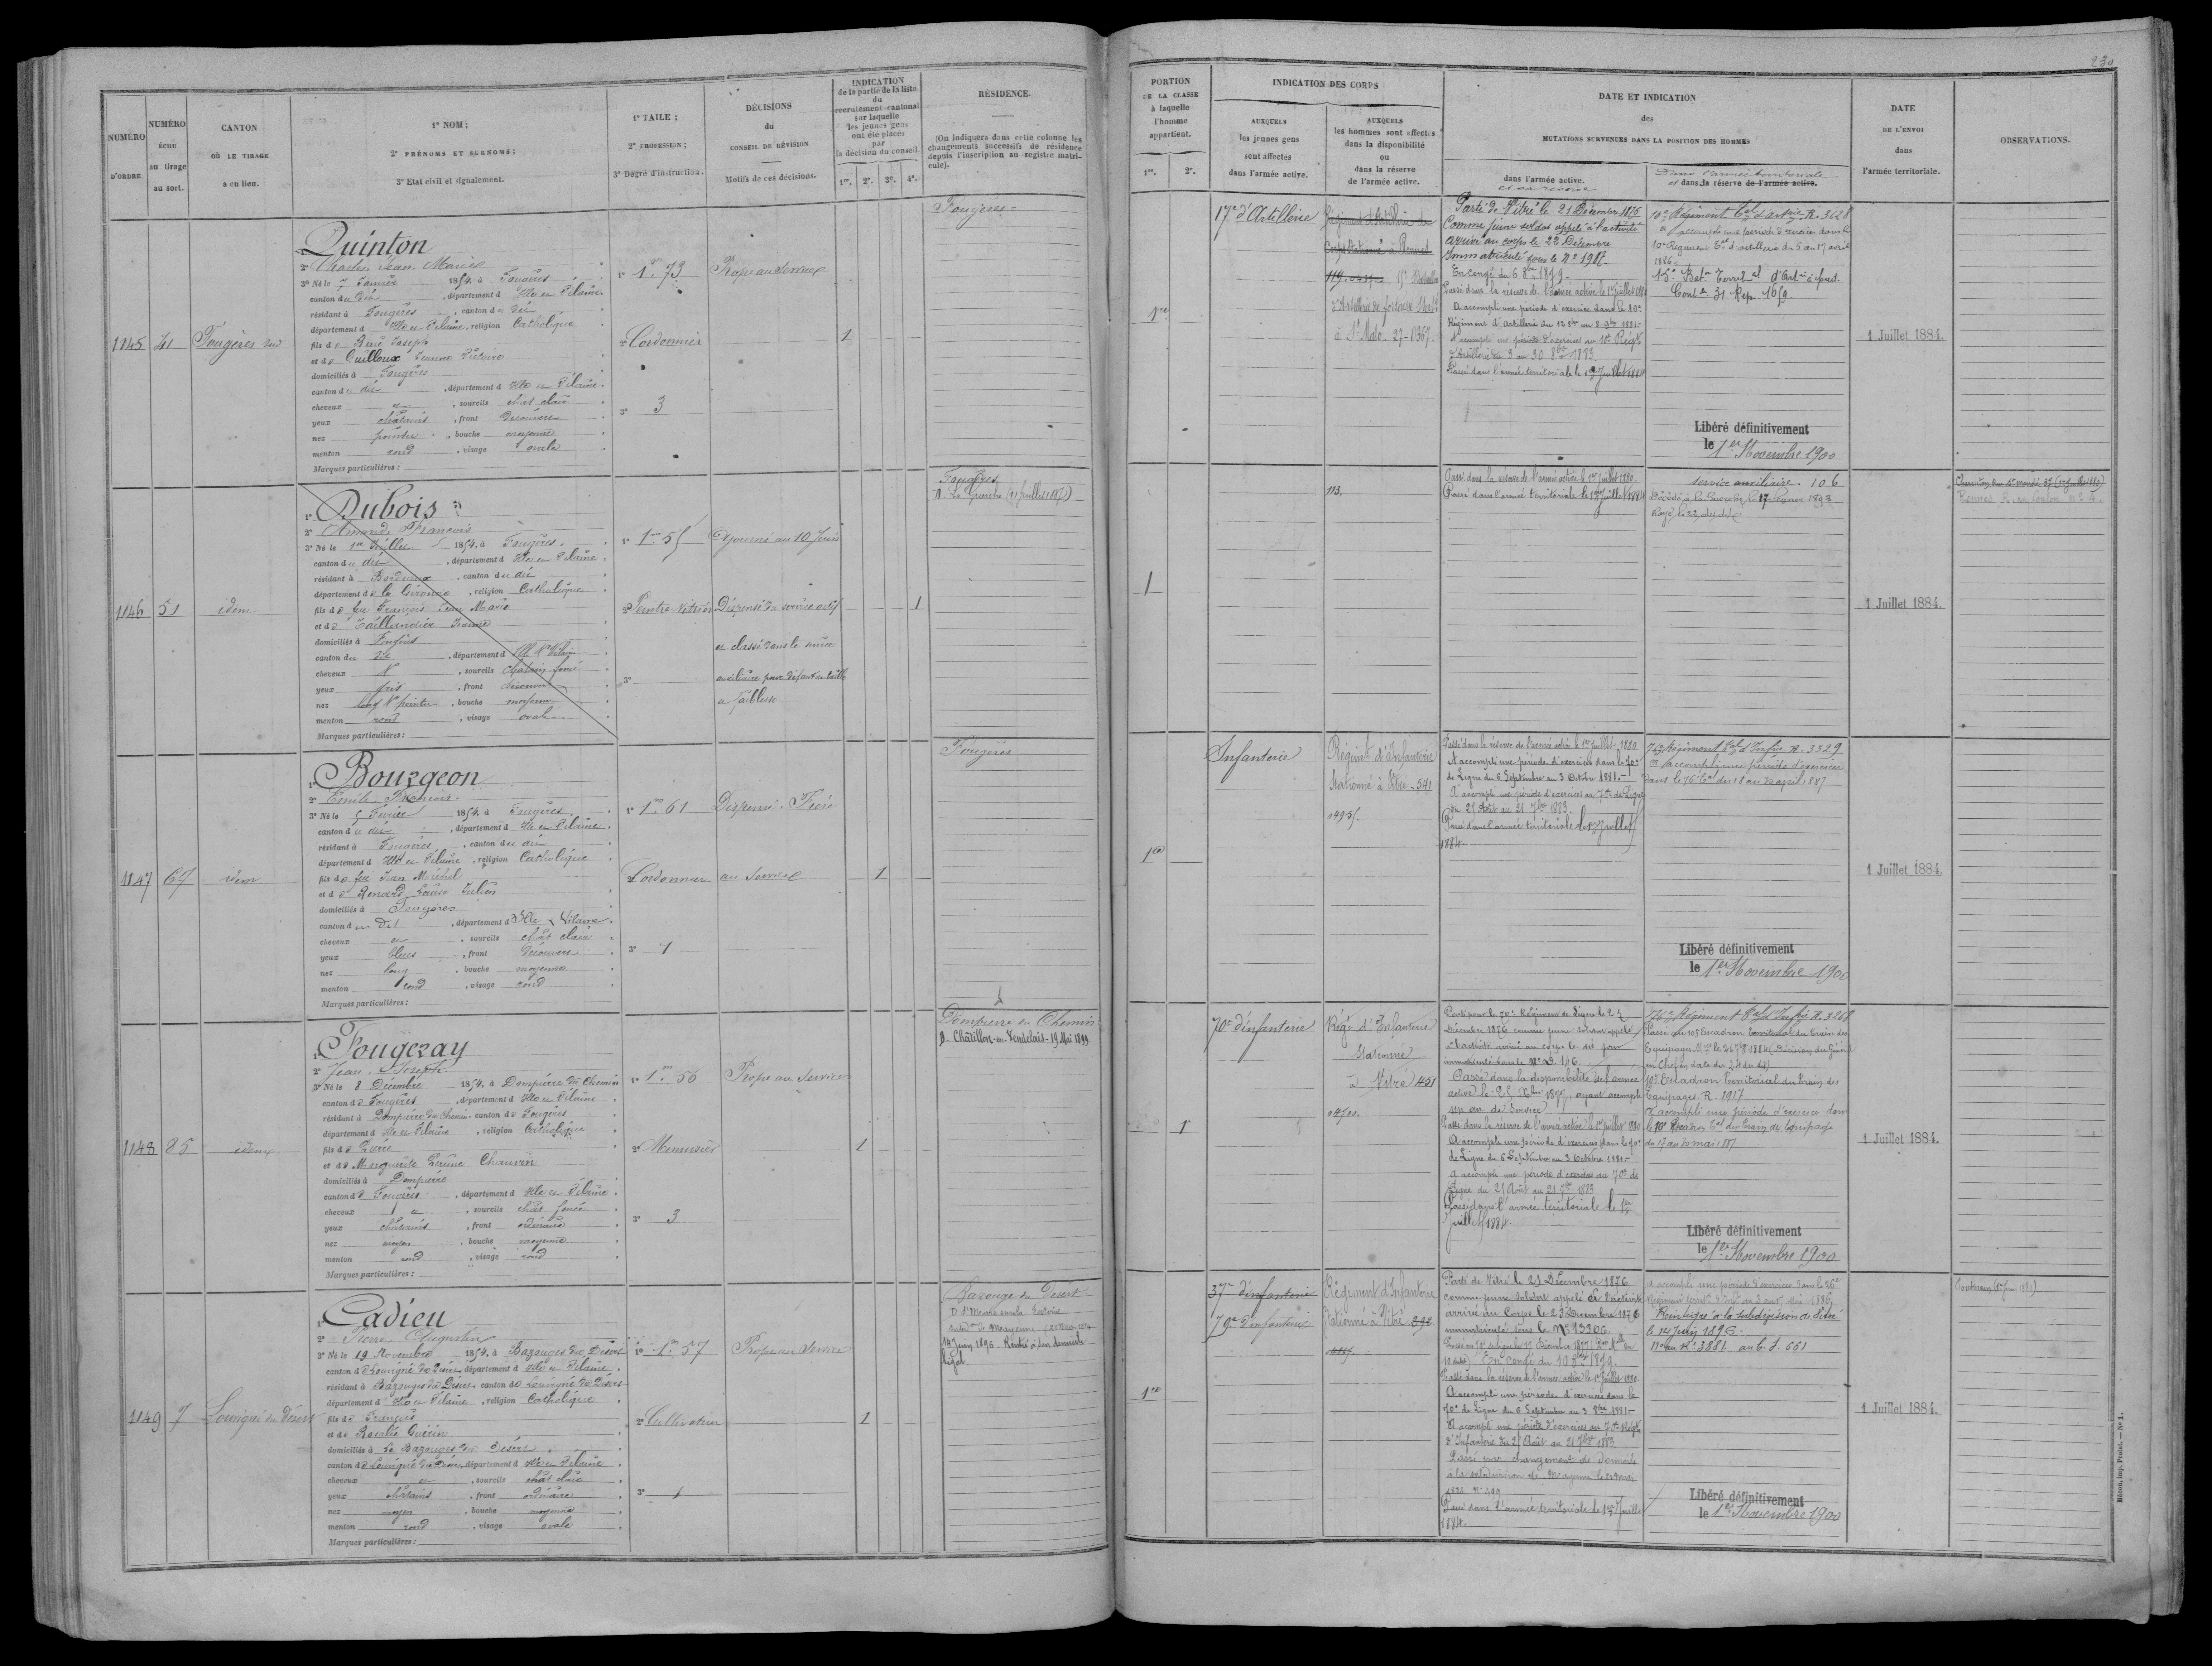 230
NUMÉRO D'ORDRE
NUMÉRO ÉCHU au tirage au sort.
CANTON OÙ LE TIRAGE a eu lieu.
1° NOM;
2° PRÉNOMS ET SURNOMS;
3° Etat civil et signalement.
1° TAILE;
2° PROFESSION;
3° Degré d'instruction.
DÉCISIONS du CONSEIL DE RÉVISION
Motifs de ces décisions.
INDICATION
de la partie de la liste
du
recrutement cantonal
sur laquelle
les jeunes gens
ont été placés
par
la décision du conseil.
1re. 2e. 3e. 4e.
RÉSIDENCE.
(On indiquera dans cette colonne les
changements successifs de résidence
depuis l'inscription au registre matri-
cule).
PORTION
DE LA CLASSE
à laquelle
l'homme
appartient.
1re. 2e.
INDICATION DES CORPS
AUXQUELS
les jeunes gens
sont affectés
dans l'armée active.
AUXQUELS
les hommes sont affectés
dans la disponibilité
ou
dans la réserve
de l'armée active.
DATE ET INDICATION
des
MUTATIONS SURVENUES DANS LA POSITION DES HOMMES
dans l'armée active.
et sa réserve
Dans l'armée territoriale
et dans la réserve de l'armée active.
DATE
DE L'ENVOI
dans
l'armée territoriale.
OBSERVATIONS.
1145 41 Fougères sud
Quinton
2° Charles Jean Marie
3° Né le 7 Janvier 1854, à Fougères
canton du dit, département d'Ille et Vilaine
résidant à Fougères, canton du dit
département d'Ille et Vilaine, religion Catholique
fils de René Joseph
et de Guilloux Jeanne Victoire
domiciliés à Fougères
canton du dit, département d'Ille et Vilaine
cheveux et, sourcils chât clair
yeux châtains, front découvert
nez pointu, bouche moyenne
menton rond, visage ovale
Marques particulières:
1° 1m 73
2° Cordonnier
3° 3
Propre au service
1
Fougères
1re
17e d'Artillerie
Régiment d'Artillerie de
Corps stationné à Rennes
15e Bataillon
d'Artillerie de forteresse Stat.
à St Malo. 27-0367.
Parti de Vitré le 21 Décembre 1875
Comme jeune soldat appelé à l'activité
arrivé au corps le 22 Décembre
Immatriculé sous le N° 1917.
En congé du 6 8bre 1879.
Passé dans la réserve de l'armée active le 1er juillet 1880
A accompli une période d'exercice dans le 10e
Régiment d'Artillerie du 12 8bre au 8 9bre 1881.
A accompli une période d'exercices au 10e Régt
d'Artillerie du 3 au 30 8bre 1883
Passé dans l'armée territoriale le 1er Juillet 1884
10e Régiment Tal d'Artrie R. 3628
A accompli une période d'exercices dans le
10e Régiment Tal d'artillerie du 5 au 17 avril
1886.
15e Batn Territal d'Artrie à pied.
Cont le 31 Rep. 1659
Libéré définitivement
le 1er Novembre 1900
1 Juillet 1884.
1146 51 idem
Dubois
2° Amand, François
3° Né le 1er Juillet 1854, à Fougères
canton du dit, département d'Ille et Vilaine
résidant à Bordeaux, canton du dit
département de la Gironde, religion Catholique
fils de feu François Jean Marie
et de Taillandier Jeanne
domiciliés à Fougères
canton du dit, département d'Ille et Vilaine
cheveux et, sourcils châtain foncé
yeux gris, front découvert
nez long et pointu, bouche moyenne
menton rond, visage ovale
Marques particulières:
1° 1m 51
2° Peintre Vitrier
3°
Ajourné au 10 Juin
Dispensé du service actif
et classé dans le service
auxiliaire pour défaut de taille
et faiblesse
1
Fougères
D. La Guerche (21 Juillet 1887)
1
113.
Passé dans la réserve de l'armée active le 1er juillet 1880
Passé dans l'armée territoriale le 1er juillet 1884
Service auxiliaire 106
Décédé à la Guerche le 17 1893
Rayé le 22 du dit
1 Juillet 1884.
1147 67 idem
Bourgeon
2° Emile François
3° Né le 5 Février 1854, à Fougères
canton du dit, département d'Ille et Vilaine
résidant à Fougères, canton du dit
département d'Ille et Vilaine, religion Catholique
fils de feu Jean Michel
et de Renard Louise Julien
domiciliés à Fougères
canton du dit, département d'Ille & Vilaine
cheveux et, sourcils chât clair
yeux bleus, front découvert
nez long, bouche moyenne
menton rond, visage rond
Marques particulières:
1° 1m 61
2° Cordonnier
3° 1
Dispensé - Frère
au service
1
Fougères
1re
Infanterie
Régiment d'Infanterie
Stationné à Vitré - 541
0495.
Passé dans la réserve de l'armée active le 1er juillet 1880
A accompli une période d'exercices dans le 70e
de Ligne du 6 Septembre au 3 Octobre 1881.
A accompli une période d'exercices au 70e de Ligne
du 25 Août au 21 7bre 1883
Passé dans l'armée territoriale le 1er juillet
1884.
76e Régiment Tal d'Infrie R. 3329
A accompli une période d'exercices
dans le 76e Tal du 18 au 30 avril 1887
Libéré définitivement
le 1er Novembre 1900
1 Juillet 1884.
1148 85 idem
Fougeray
2° Jean Joseph
3° Né le 8 Décembre 1854, à Dompierre du Chemin
canton de Fougères, département d'Ille et Vilaine
résidant à Dompierre du Chemin, canton de Fougères
département d'Ille et Vilaine, religion Catholique
fils de Pierre
et de Marguerite Perrine Chauvin
domiciliés à Dompierre
canton de Fougères, département d'Ille et Vilaine
cheveux et, sourcils chât foncé
yeux châtains, front ordinaire
nez moyen, bouche moyenne
menton rond, visage rond
Marques particulières:
1° 1m 56
2° Menuisier
3° 3
Propre au service
1
Dompierre du Chemin
D. Châtillon-en-Vendelais - 19 Mai 1899
1
70e d'infanterie
Régt d'Infanterie
Stationné
à Vitré 451
Parti pour le 70e Régiment de Ligne le 23
Décembre 1876 comme jeune soldat appelé
à l'activité arrivé au corps le dit jour
immatriculé sous le N° D. 146
Passé dans la disponibilité de l'armée
active le 25 Xbre 1877, ayant accompli
un an de service
Passé dans la réserve de l'armée active le 1er juillet 1880
A accompli une période d'exercices dans le 70e
de Ligne du 6 Septembre au 3 Octobre 1881.
A accompli une période d'exercices au 70e de
Ligne du 25 Août au 21 7bre 1883
Passé dans l'armée territoriale le 1er
Juillet 1884.
76e Régiment Tal d'Infrie R. 3268
Passé au 10e Escadron territorial du train des
Equipages
en Chef en date du 24 du dit)
10e Escadron Territorial du Train des
Equipages R. 1917
A accompli une période d'exercice dans
le 10e Escadron Tal du train des équipages
du 17 au 30 mai 1887
Libéré définitivement
le 1er Novembre 1900
1 Juillet 1884.
1149 7 Louvigné du Désert
Cadieu
2° Pierre Augustin
3° Né le 19 Novembre 1854, à Bazouges du Désert
canton de Louvigné du Désert, département d'Ille et Vilaine
résidant à Bazouges du Désert, canton de Louvigné du Désert
département d'Ille et Vilaine, religion Catholique
fils de François
et de Rosalie Guérin
domiciliés à La Bazouges du Désert
canton de Louvigné du Désert, département d'Ille et Vilaine
cheveux et, sourcils chât clair
yeux châtains, front ordinaire
nez moyen, bouche moyenne
menton rond, visage ovale
Marques particulières:
1° 1m 57
2° Cultivateur
3° 1
Propre au service
1
Bazouge du Désert
Subdon de Mayenne
14 Juin 1896 Rentré à son domicile
légal
1re
37e d'infanterie
70e d'infanterie
Régiment d'Infanterie
Stationné à Vitré
Parti de Vitré le 21 Décembre 1876
comme jeune soldat appelé à l'activité
arrivé au Corps le 23 Décembre 1876
immatriculé sous le N° 13306
En congé du 10 8bre 1879.
Passé dans la réserve de l'armée active le 1er juillet 1880.
A accompli une période d'exercices dans le
70e de Ligne du 6 Septembre au 3 8bre 1881
A accompli une période d'exercices au 70e Régt
d'Infanterie du 25 Août au 21 7bre 1883
Passé par changement de domicile
à la subdivision de Mayenne le
Passé dans l'armée territoriale le 1er Juillet
1884.
A accompli une période d'exercices dans le 26e
Réintégré à la subdivision de Vitré
le 14 Juin 1896.
Libéré définitivement
le 1er Novembre 1900
1 Juillet 1884.
Mâcon, imp. Protat. — N° 1.